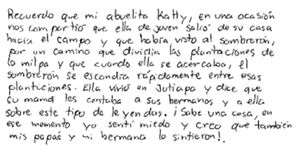 Recuerdo que mi abuelita Katty, en una ocasión
nos compartió que ella de joven salió de su casa
hacia el campo y que había visto al sombrerón,
por un camino que dividía las plantaciones de
la milpa y que cuando ella se acercaba, el
sombrerón se escondía rápidamente entre esas
plantaciones. Ella vivió en Jutiapa y dice que
su mamá les contaba a sus hermanos y a ella
sobre este tipo de leyendas. ¡Sabe una cosa, en
ese momento yo sentí miedo y creo que también
mis papás y mi hermana lo sintieron!.